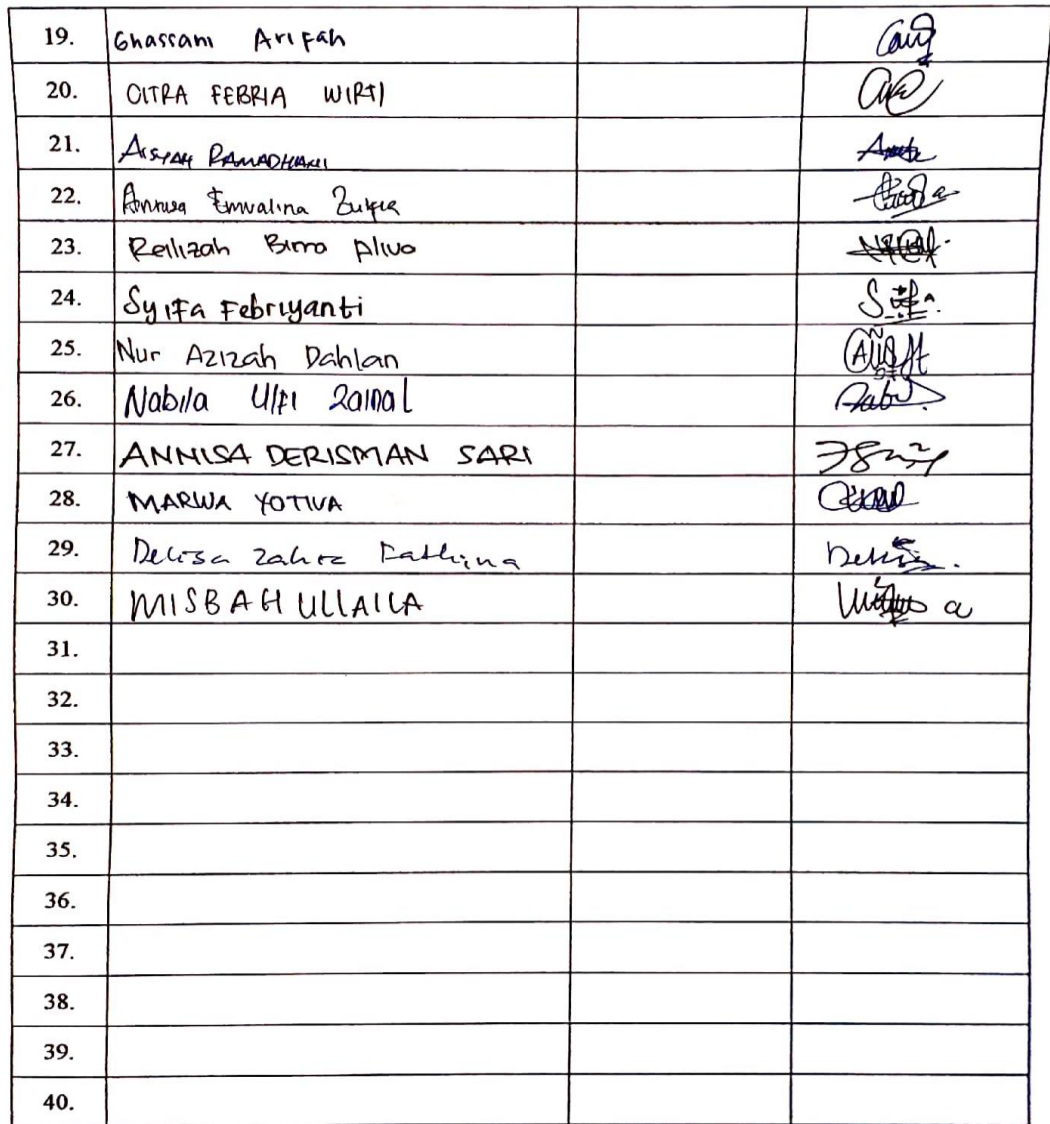 19. Ghassani Arifah
20. CITRA FEBRIA WIRTI
21. AISYAH RAMADHANI
22. Annisa Emvalina
23. Reilizah Bimo Alivo
24. Syifa Febriyanti
25. Nur Azizah Dahlan
26. Nabila Ulfi Zainal
27. ANNISA DERISMAN SARI
28. MARWA YOTIVA
29. Delisa Zahra Fathina
30. MISBAH ULLAILA
31.
32.
33.
34.
35.
36.
37.
38.
39.
40.